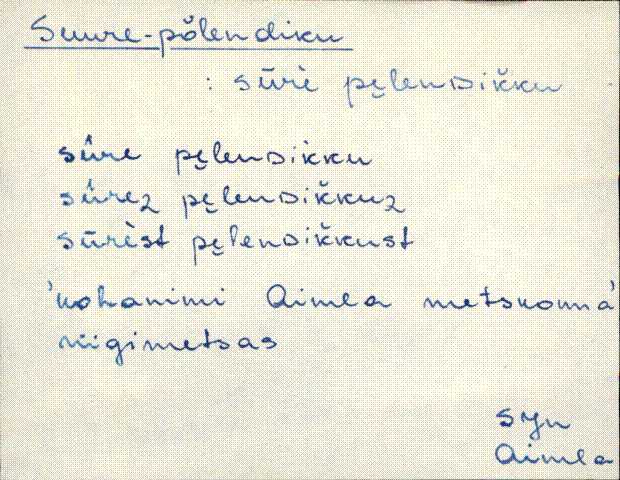 Suure-põlendiku
: sūrè pe̮lenᴅik̆ku
sûre pe̮lenᴅik̆ku
sûrez pe̮lenᴅik̆kuz
sūrèst pe̮lenᴅik̆kust
'kohanimi Aimla metskonna'
riigimetsas
Syn
Aimla